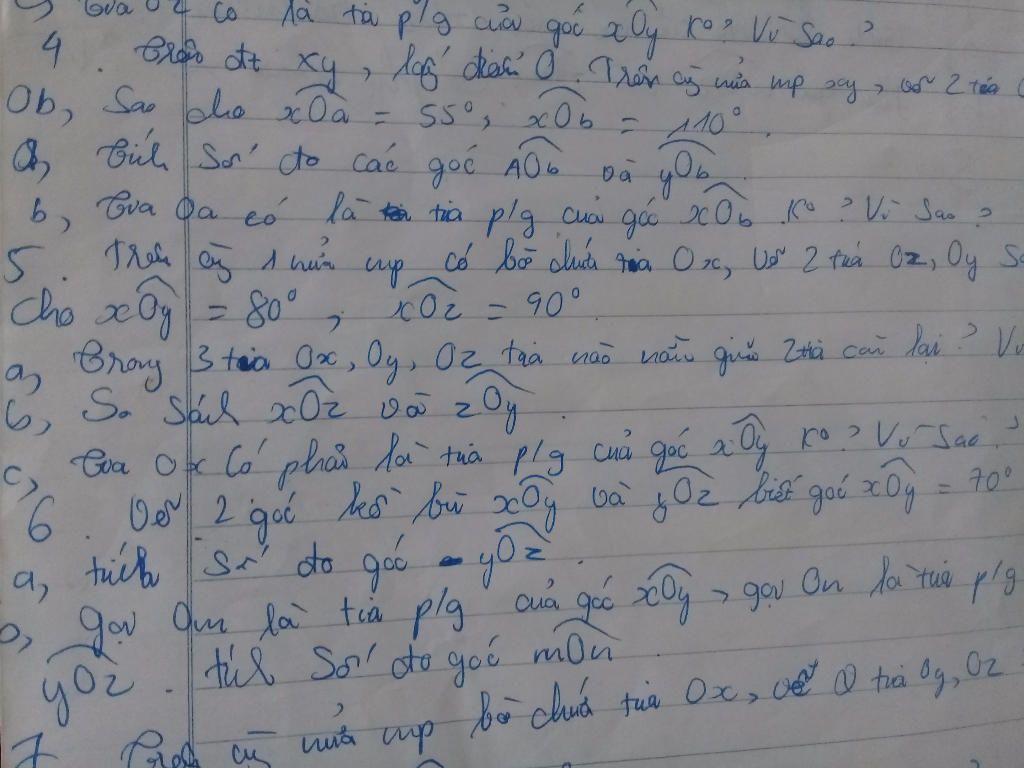 Oz có là tia p/g của góc xOy ko? Vì sao?
4. Trên đt xy, lấy điểm O. Trên cg nửa mp xy, vẽ 2 tia
Ob, sao cho xOa = 55°, xOb = 110°.
a, tính số đo các góc AOb và yOb.
b, tia Oa có là tia p/g của góc xOb ko? Vì sao?
5. Trên cg 1 nửa mp có bờ chứa tia Ox, vẽ 2 tia Oz, Oy
cho xOy = 80°, xOz = 90°
a, trong 3 tia Ox, Oy, Oz tia nào nằm giữa 2 tia còn lại?
b, So sánh xOz và zOy.
c, tia Ox có phải là tia p/g của góc xOy ko? Vì sao?
6. Vẽ 2 góc kề bù xOy và yOz biết góc xOy = 70°
a, tính số đo góc yOz.
b, gọi Om là tia p/g của góc xOy, gọi On là tia p/g
yOz. tính số đo góc mOn.
7. Trên cg nửa mp bờ chứa tia Ox, vẽ 2 tia Oy, Oz